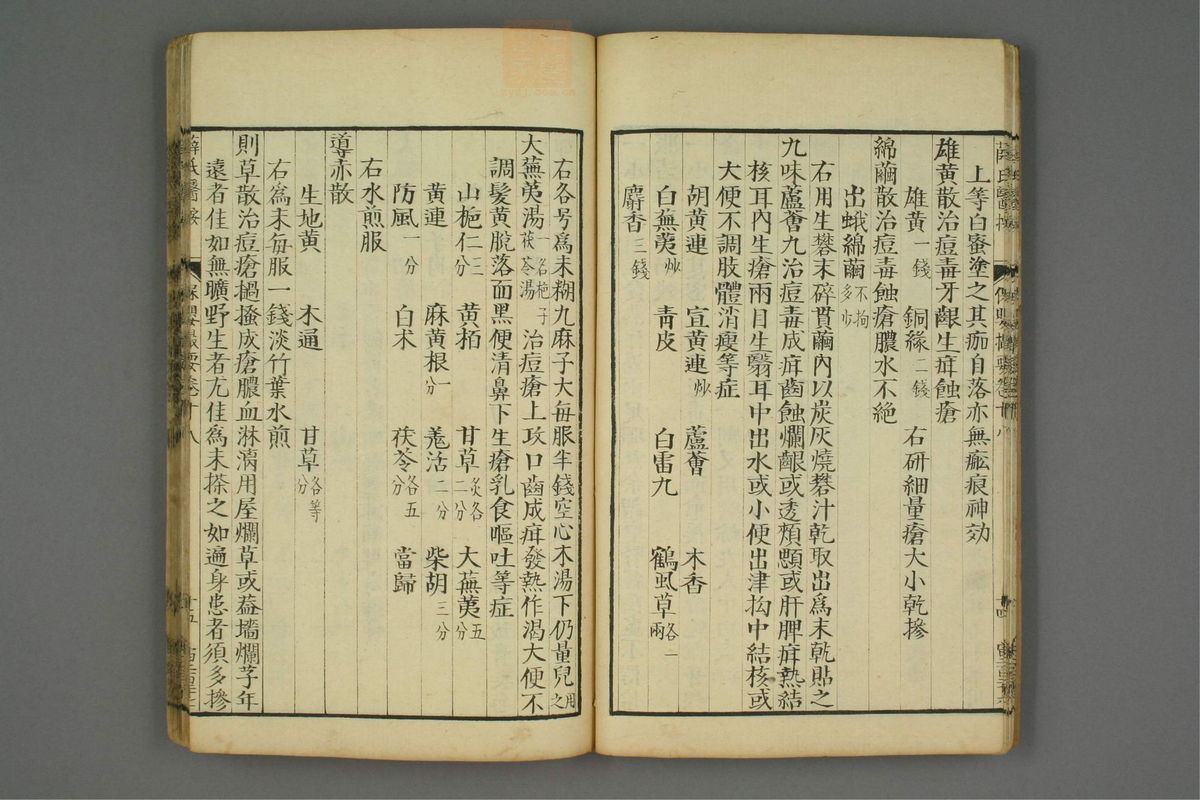 上等白蜜塗之其痂自落亦無瘢痕神効
雄黃散治痘毒牙齦生疳蝕瘡
雄黃一錢 銅綠二錢 右研細量瘡大小乾摻
綿繭散治痘毒蝕瘡膿水不絶
出蛾綿繭不拘多少
右用生礬末碎貫繭內以炭灰燒礬汁乾取出爲末乾貼之
九味蘆薈丸治痘毒成疳齒蝕爛齦或透頰顋或肝脾疳熱結
核耳內生瘡兩目生翳耳中出水或小便出津拗中結核或
大便不調肢體消瘦等症
胡黃連 宣黃連炒 蘆薈 木香
白蕪荑炒 靑皮 白雷丸 鶴虱草各一兩
麝香三錢
右各另爲末糊丸麻子大每服半錢空心木湯下仍量兒用之
大蕪荑湯一名梔子茯苓湯 治痘瘡上攻口齒成疳發熱作渴大便不
調髮黃脫落面黑便清鼻下生瘡乳食嘔吐等症
山梔仁三分 黃栢 甘草炙各二分 大蕪荑五分
黃連 麻黃根一分 羗活二分 柴胡三分
防風一分 白术 茯苓各五分 當歸
右水煎服
導赤散
生地黃 木通 甘草各等分
右爲末每服一錢淡竹葉水煎
則草散治痘瘡搔成瘡膿血淋漓用屋爛草或葢墻爛草年
遠者佳如無曠野生者尤佳爲末搽之如遍身患者須多摻
薛氏醫按 保嬰撮要卷十八 十五